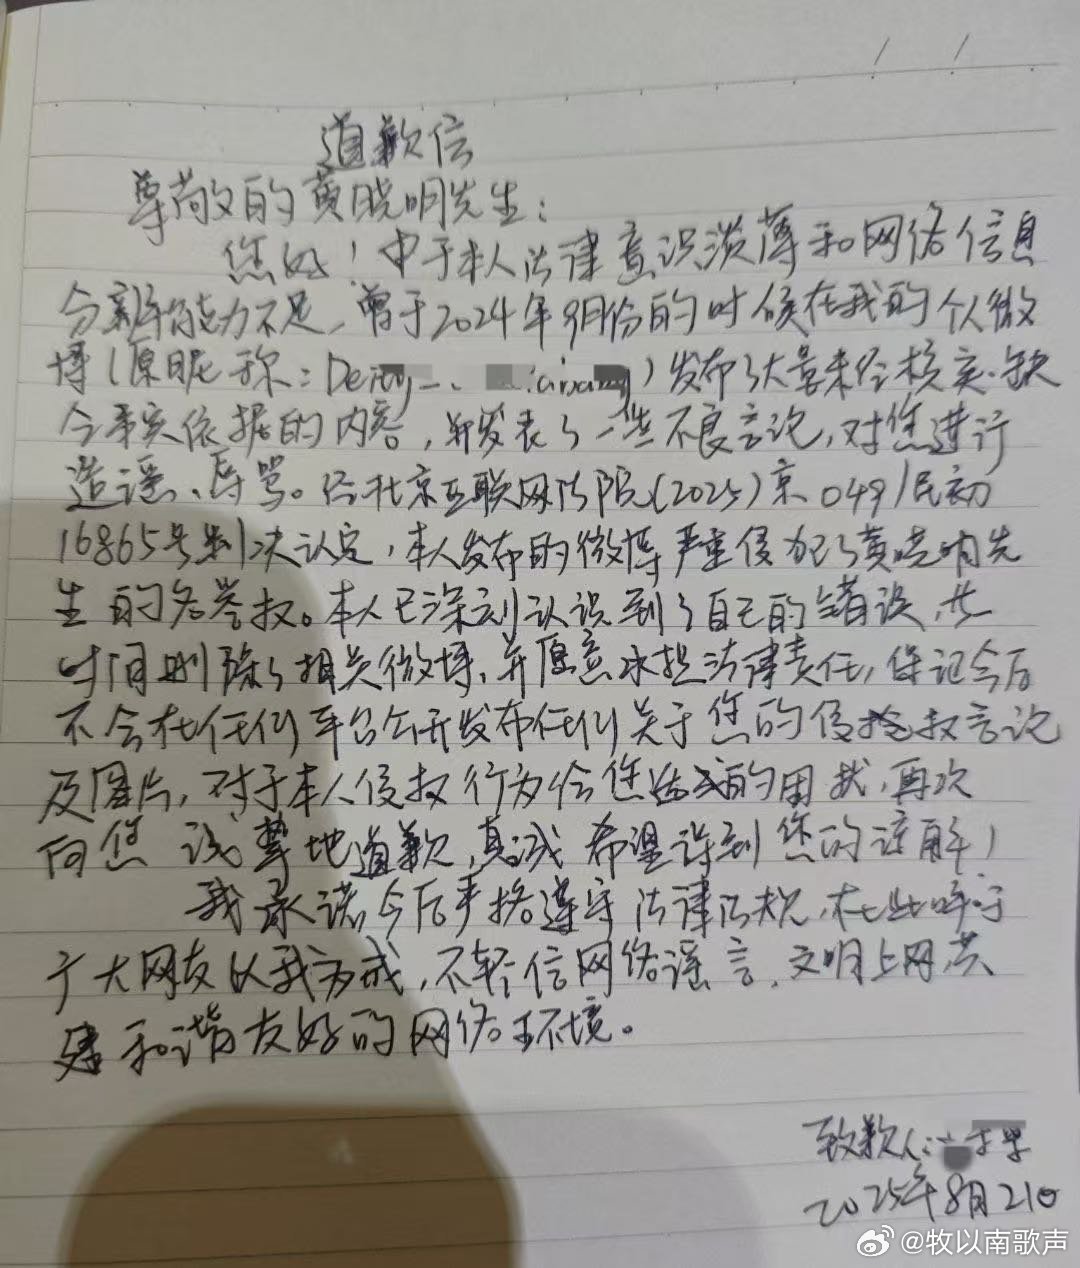 道歉信
尊敬的黄晓明先生：
您好！由于本人法律意识淡薄和网络信息
分辨能力不足，曾于2024年9月份的时候在我的个人微
博（原昵称：Deity_ ）发布了大量未经核实、缺
今事实依据的内容，并发表了一些不良言论，对您进行
造谣、辱骂。经北京互联网法院（2025）京0491民初
16865号判决认定，本人发布的微博严重侵犯了黄晓明先
生的名誉权。本人已深刻认识到了自己的错误，此
时间删除了相关微博，并愿意承担法律责任，保证今后
不会在任何平台公开发布任何关于您的侵权言论
及图片，对于本人侵权行为给您造成的困扰，再次
向您诚挚地道歉，真诚希望得到您的谅解！
我承诺今后严格遵守法律法规，在此呼吁
广大网友以我为戒，不轻信网络谣言，文明上网，共
建和谐友好的网络环境。
致歉人：
2025年8月21日
@牧以南歌声